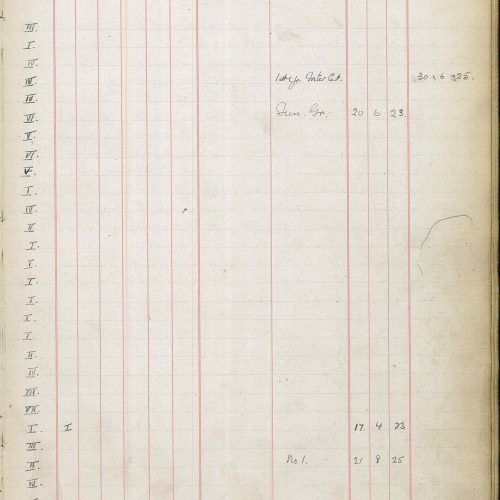 III.
I.
IV.
III. 1st yr Inter Cert. 30 6 325.
III.
VI. Jun. Gr. 20 6 23.
V.
VI.
V.
I.
IV.
II
I.
I.
I
I
I.
I.
II
IV.
VII.
VII.
I. I 17 4 23
III.
II. No 1. 21 8 25
VI.